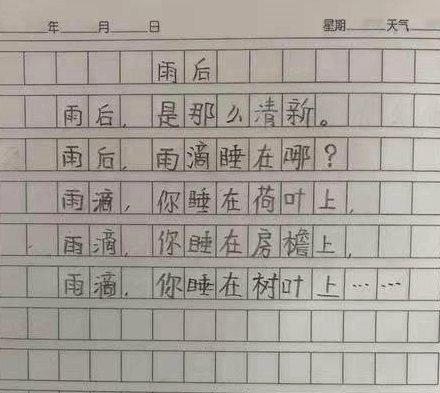 年 月 日 星期 天气
雨后
雨后，是那么清新。
雨后，雨滴睡在哪？
雨滴，你睡在荷叶上，
雨滴，你睡在房檐上，
雨滴，你睡在树叶上……